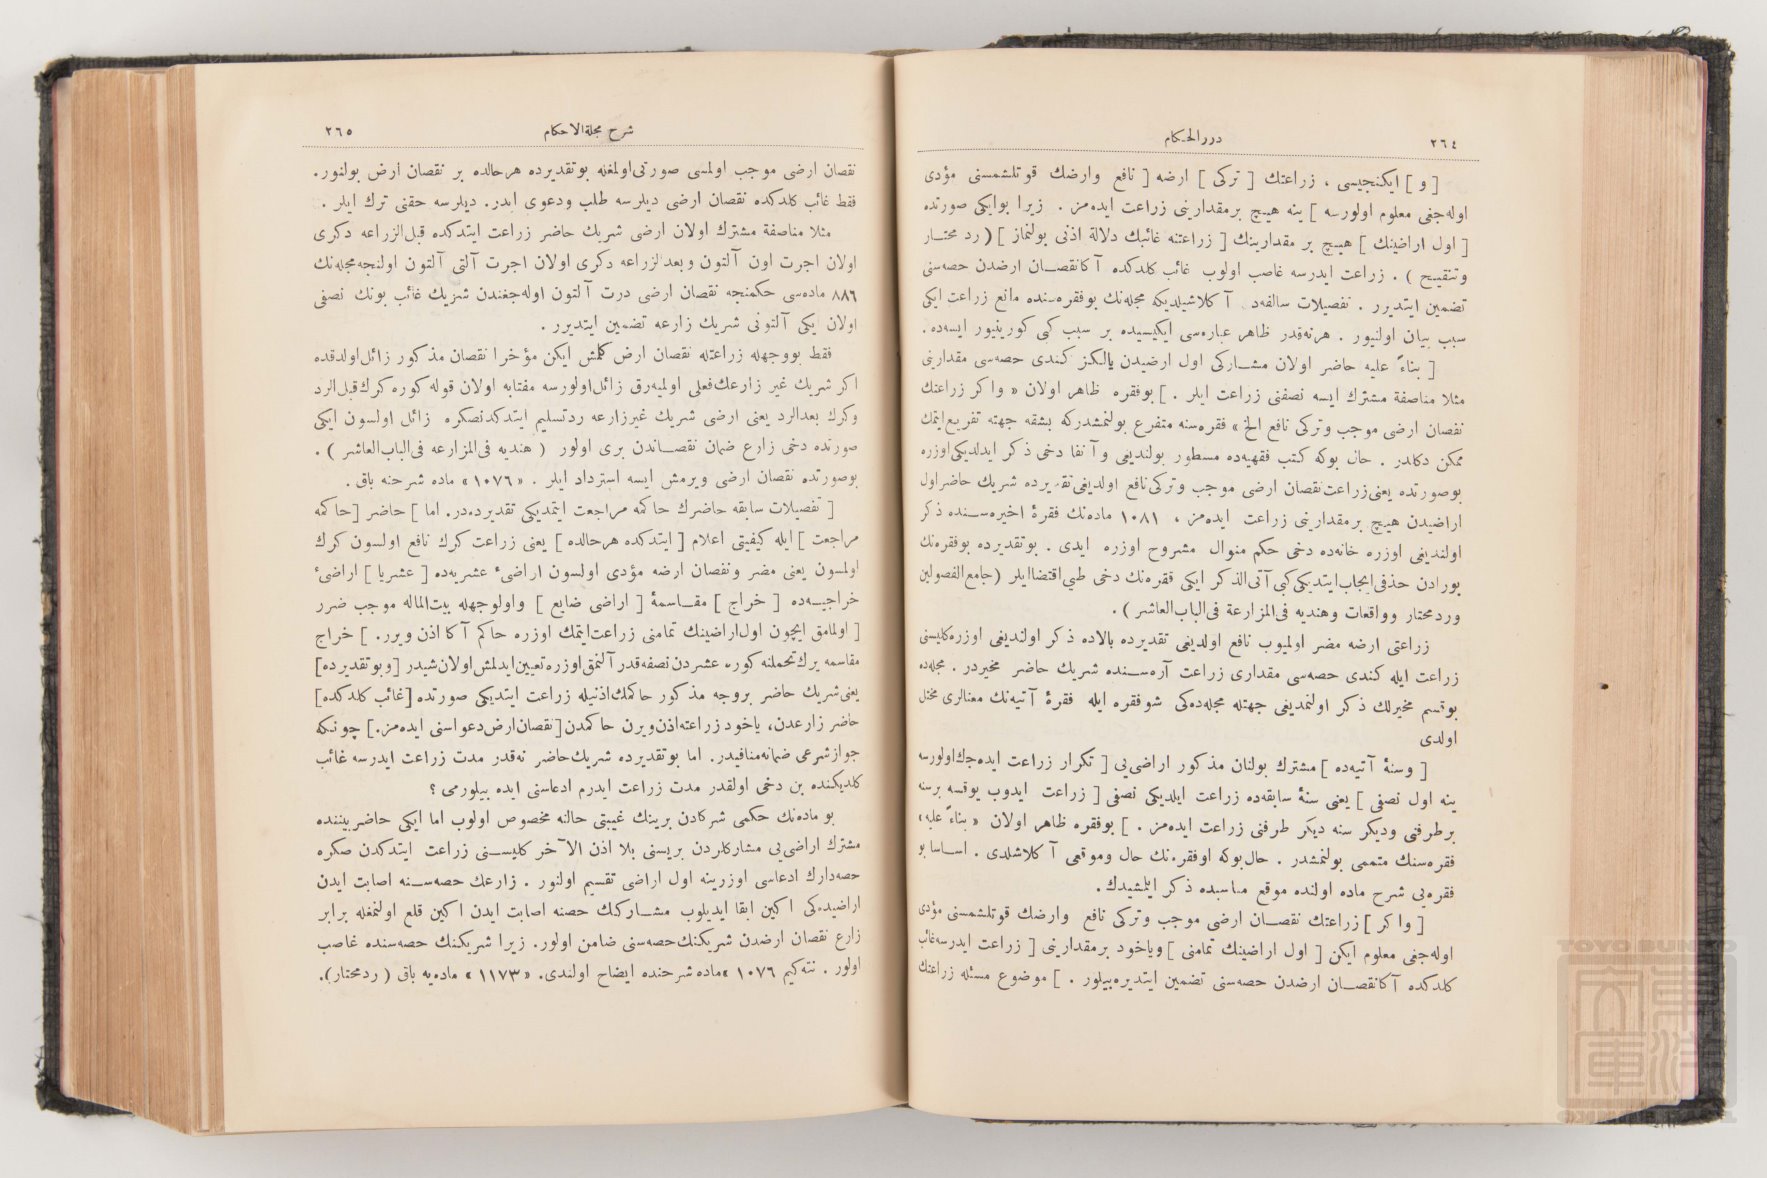 ٢٦٤
دررالحكام
[ و ] ايكنجيسى ، زراعتك [ تركى ] ارضه [ نافع وارضك قوتلشمسنى مؤدى
اوله‌جغى معلوم اولورسه ] ينه هيچ برمقدارينى زراعت ايده‌مز . زيرا بوايكى صورتده
[ اول اراضينك ] هيچ بر مقدارينك [ زراعتنه غائبك دلالة اذنى بولنماز ] ( رد محتار
وتنقيح ) . زراعت ايدرسه غاصب اولوب غائب كلدكده آكا نقصان ارضدن حصه‌سنى
تضمين ايتديرر . تفصيلات سالفه‌دن آكلاشيلديكه مجله‌نك بوفقره‌سنده مانع زراعت ايكى
سبب بيان اولنيور . هرنه‌قدر ظاهر عباره‌سى ايكيسيده بر سبب كبى كورينيور ايسه‌ده .
[ بناءً عليه حاضر اولان مشاركى اول ارضيدن يالكز كندى حصه‌سى مقدارينى
مثلا مناصفة مشترك ايسه نصفنى زراعت ايلر . ] بوفقره ظاهر اولان « واكر زراعتك
نقصان ارضى موجب وتركى نافع الخ » فقره‌سنه متفرع بولنمشدركه بشقه جهته تفريع ايتمك
ممكن دكلدر . حال بوكه كتب فقهيه‌ده مسطور بولنديغى وآنفا دخى ذكر ايدلديكى اوزره
بوصورتده يعنى زراعت نقصان ارضى موجب وتركى نافع اولديغى تقديرده شريك حاضر اول
اراضيدن هيچ برمقدارينى زراعت ايده‌مز ، ١٠٨١ ماده‌نك فقرۀ اخيره‌سنده ذكر
اولنديغى اوزره خانه‌ده دخى حكم منوال مشروح اوزره ايدى . بوتقديرده بوفقره‌نك
بورادن حذفى ايجاب ايتديكى كبى آتى الذكر ايكى فقره‌نك دخى طيى اقتضا ايلر ( جامع الفصولين
وردمحتار وواقعات وهنديه فى المزارعة فى الباب العاشر ) .
زراعتى ارضه مضر اولميوب نافع اولديغى تقديرده بالاده ذكر اولنديغى اوزره كليسنى
زراعت ايله كندى حصه‌سى مقدارى زراعت آره‌سنده شريك حاضر مخيردر . مجله‌ده
بوقسم مخيرلك ذكر اولنمديغى جهتله مجله‌ده‌كى شوفقره ايله فقرۀ آتيه‌نك معنالرى مختل
اولدى
[ وسنۀ آتيه‌ده ] مشترك بولنان مذكور اراضى‌يى [ تكرار زراعت ايده‌جك اولورسه
ينه اول نصفى ] يعنى سنۀ سابقه‌ده زراعت ايلديكى نصفى [ زراعت ايدوب يوقسه برسنه
برطرفنى وديكر سنه ديكر طرفنى زراعت ايده‌مز . ] بوفقره ظاهر اولان « بناءً عليه »
فقره‌سنك متممى بولنمشدر . حال بوكه اوفقره‌نك حال وموقعى آكلاشلدى . اساسا بو
فقره‌يى شرح ماده اولنده موقع مناسبده ذكر ايتمشيدك .
[ واكر ] زراعتك نقصان ارضى موجب وتركى نافع وارضك قوتلشمسنى مؤدى
اوله‌جغى معلوم ايكن [ اول اراضينك تمامنى ] وياخود برمقدارينى [ زراعت ايدرسه غائب
كلدكده آكا نقصان ارضدن حصه‌سنى تضمين ايتديره‌بيلور . ] موضوع مسئله زراعتك
شرح مجلة الاحكام
٢٦٥
نقصان ارضى موجب اولمسى صورتى اولمغله بوتقديرده هرحالده بر نقصان ارض بولنور .
فقط غائب كلدكده نقصان ارضى ديلرسه طلب ودعوى ايدر . ديلرسه حقنى ترك ايلر .
مثلا مناصفة مشترك اولان ارضى شريك حاضر زراعت ايتدكده قبل الزراعه دكرى
اولان اجرت اون آلتون وبعدالزراعه دكرى اولان اجرت آلتى آلتون اولنجه مجله‌نك
٨٨٦ ماده‌سى حكمنجه نقصان ارضى درت آلتون اوله‌جغندن شريك غائب بونك نصفى
اولان يكى آلتونى شريك زارعه تضمين ايتديرر .
فقط بووجهله زراعتله نقصان ارض كلمش ايكن مؤخرا نقصان مذكور زائل اولدقده
اكر شريك غير زارعك فعلى اولميه‌رق زائل اولورسه مفتابه اولان قوله كوره كرك قبل الرد
وكرك بعدالرد يعنى ارضى شريك غيرزارعه رد وتسليم ايتدكدنصكره زائل اولسون ايكى
صورتده دخى زارع ضمان نقصاندن برى اولور ( هنديه فى المزارعه فى الباب العاشر ) .
بوصورتده نقصان ارضى ويرمش ايسه استرداد ايلر . « ١٠٧٦ » ماده شرحنه باق .
[ تفصيلات سابقه حاضرك حاكمه مراجعت ايتمديكى تقديرده‌در . اما ] حاضر [ حاكمه
مراجعت ] ايله كيفيتى اعلام [ ايتدكده هرحالده ] يعنى زراعت كرك نافع اولسون كرك
اولمسون يعنى مضر ونقصان ارضه مؤدى اولسون اراضىء عشريه‌ده [ عشريا ] اراضىء
خراجيه‌ده [ خراج ] مقاسمۀ [ اراضى ضايع ] واولوجهله بيت‌الماله موجب ضرر
[ اولمامق ايچون اول اراضينك تمامنى زراعت ايتمك اوزره حاكم آكا اذن ويرر . ] خراج
مقاسمه يرك تحملنه كوره عشردن نصفه قدر آلنمق اوزره تعيين ايدلمش اولان شيدر [ وبو تقديرده ]
يعنى شريك حاضر بروجه مذكور حاكمك اذنيله زراعت ايتديكى صورتده [ غائب كلدكده ]
حاضر زارعدن ، ياخود زراعته اذن ويرن حاكمدن [ نقصان ارض دعواسنى ايده‌مز . ] چونكه
جواز شرعى ضمانه منافيدر . اما بوتقديرده شريك حاضر نه‌قدر مدت زراعت ايدرسه غائب
كلديكنده بن دخى اولقدر مدت زراعت ايدرم ادعاسنى ايده بيلورمى ؟
بو ماده‌نك حكمى شركادن برينك غيبتى حالنه مخصوص اولوب اما ايكى حاضر بيننده
مشترك اراضى‌يى مشاركلردن بريسنى بلا اذن الآخر كليسنى زراعت ايتدكدن صكره
حصه‌دارك ادعاسى اوزرينه اول اراضى تقسيم اولنور . زارعك حصه‌سنه اصابت ايدن
اراضيده‌كى اكين ابقا ايديلوب مشاركنك حصنه اصابت ايدن اكين قلع اولنمغله برابر
زارع نقصان ارضدن شريكنك حصه‌سنى ضامن اولور . زيرا شريكنك حصه‌سنده غاصب
اولور . نته‌كيم ١٠٧٦ » ماده شرحنده ايضاح اولندى . « ١١٧٣ » ماده‌يه باق ( ردمحتار ) .